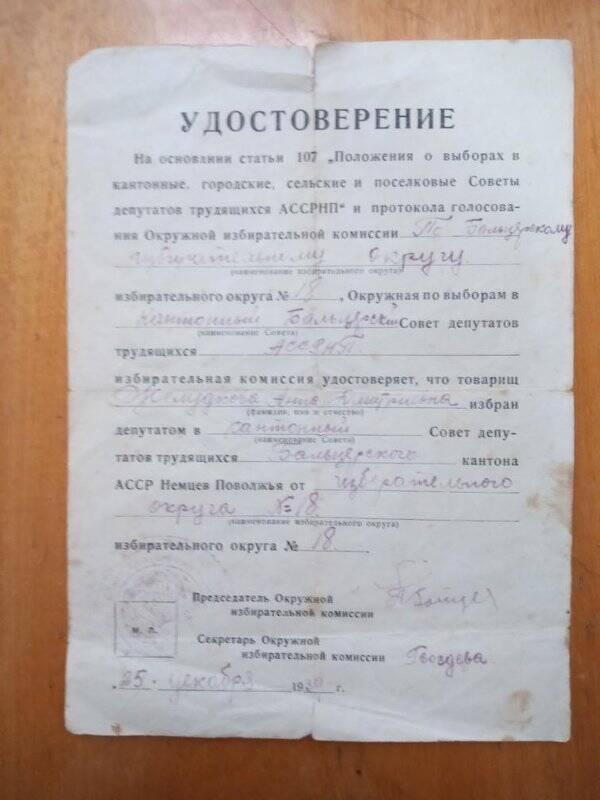 УДОСТОВЕРЕНИЕ
На основании статьи 107 „Положения о выборах в
кантонные, городские, сельские и поселковые Советы
депутатов трудящихся АССРНП“ и протокола голосова-
ния Окружной избирательной комиссии По Бальцерскому
избирательному округу.
(наименование избирательного округа)
избирательного округа № 18, Окружная по выборам в
кантонный Бальцерский Совет депутатов
(наименование Совета)
трудящихся АССРНП
избирательная комиссия удостоверяет, что товарищ
Анна Дмитриевна избран
(фамилия, имя и отчество)
депутатом в кантонный Совет депу-
(наименование Совета)
татов трудящихся Бальцерского кантона
АССР Немцев Поволжья от избирательного
округа № 18.
(наименование избирательного округа)
избирательного округа № 18.
Председатель Окружной
избирательной комиссии
м. п.
Секретарь Окружной
избирательной комиссии Гвоздева
„25“ декабря 1939 г.